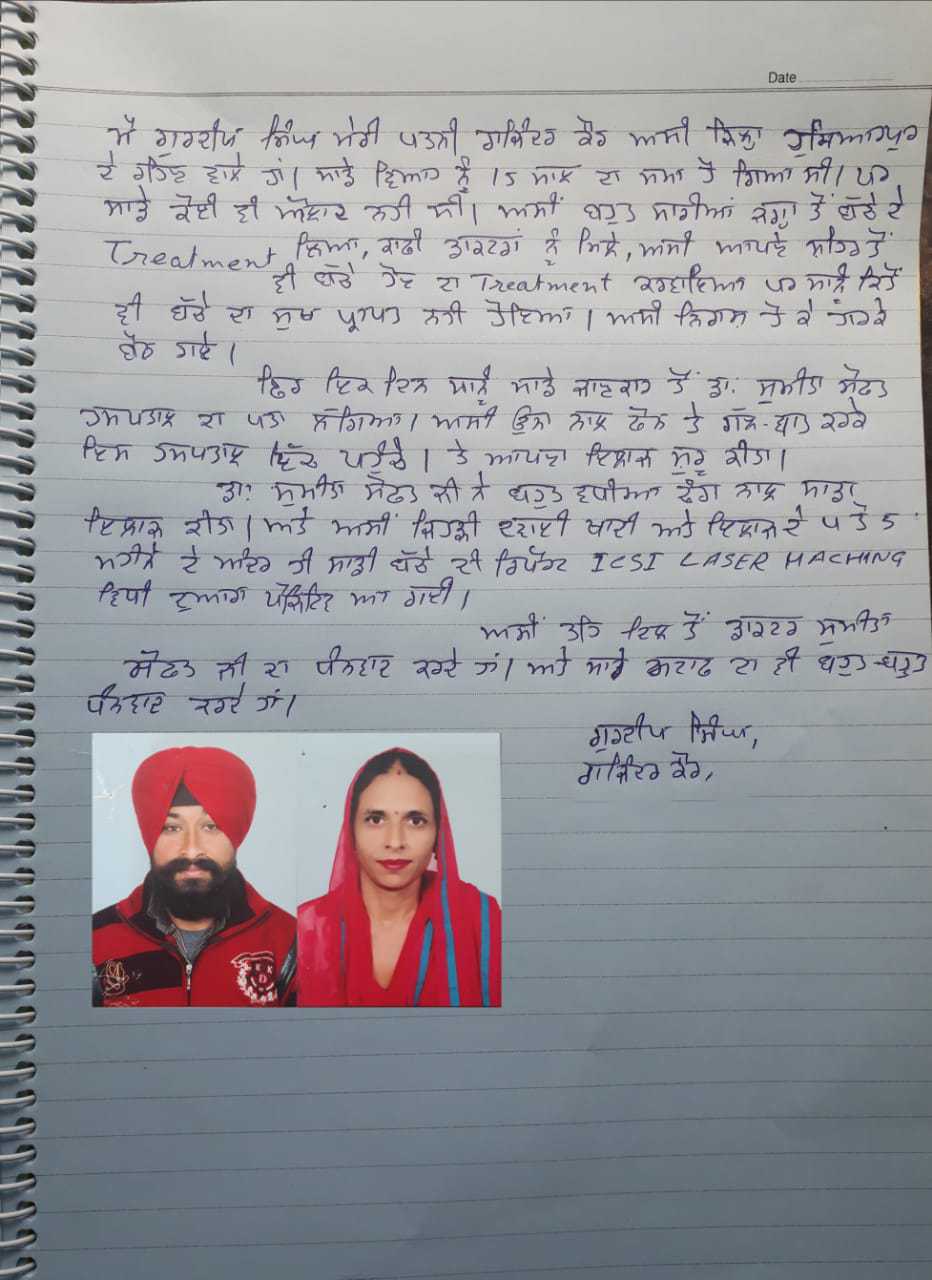 Date
ਮੈਂ ਗੁਰਦੀਪ ਸਿੰਘ ਮੇਰੀ ਪਤਨੀ ਰਾਜਿੰਦਰ ਕੌਰ ਅਸੀ ਜ਼ਿਲ੍ਹਾ ਹੁਸ਼ਿਆਰਪੁਰ
ਦੇ ਰਹਿਣ ਵਾਲੇ ਹਾਂ। ਸਾਡੇ ਵਿਆਹ ਨੂੰ 15 ਸਾਲ ਦਾ ਸਮਾਂ ਹੋ ਗਿਆ ਸੀ। ਪਰ
ਸਾਡੇ ਕੋਈ ਵੀ ਔਲਾਦ ਨਹੀ ਸੀ। ਅਸੀਂ ਬਹੁਤ ਸਾਰੀਆਂ ਜਗ੍ਹਾ ਤੋਂ ਬੱਚੇ ਦੇ
Treatment ਲਿਆ, ਕਾਫੀ ਡਾਕਟਰਾਂ ਨੂੰ ਮਿਲੇ, ਅਸੀ ਆਪਣੇ ਸ਼ਹਿਰ ਤੋਂ
ਵੀ ਬੱਚੇ ਹੋਣ ਦਾ Treatment ਕਰਵਾਇਆ ਪਰ ਸਾਨੂੰ ਕਿਤੋਂ
ਵੀ ਬੱਚੇ ਦਾ ਸੁਖ ਪ੍ਰਾਪਤ ਨਹੀ ਹੋਇਆ। ਅਸੀ ਨਿਰਾਸ਼ ਹੋ ਕੇ ਹਾਰਕੇ
ਬੈਠ ਗਏ।
ਫਿਰ ਇਕ ਦਿਨ ਸਾਨੂੰ ਸਾਡੇ ਜਾਣਕਾਰ ਤੋਂ ਡਾ: ਸੁਮੀਤਾ ਸੋਫਤ
ਹਸਪਤਾਲ ਦਾ ਪਤਾ ਲੱਗਿਆ। ਅਸੀ ਉਨਾ ਨਾਲ ਫੋਨ ਤੇ ਗੱਲ-ਬਾਤ ਕਰਕੇ
ਇਸ ਹਸਪਤਾਲ ਵਿੱਚ ਪਹੁੰਚੇ। ਤੇ ਆਪਣਾ ਇਲਾਜ ਸ਼ੁਰੂ ਕੀਤਾ।
ਡਾ: ਸੁਮੀਤਾ ਸੋਫਤ ਜੀ ਨੇ ਬਹੁਤ ਵਧੀਆ ਢੰਗ ਨਾਲ ਸਾਡਾ
ਇਲਾਜ ਕੀਤਾ। ਅਤੇ ਅਸੀਂ ਜਿਹੜੀ ਦਵਾਈ ਖਾਦੀ ਅਤੇ ਇਲਾਜ ਦੇ 5
ਮਹੀਨੇ ਦੇ ਅੰਦਰ ਹੀ ਸਾਡੀ ਬੱਚੇ ਦੀ ਰਿਪੋਰਟ ICSI LASER MACHING
ਵਿਧੀ ਦੁਆਰਾ ਪੌਜਿਟਿਵ ਆ ਗਈ।
ਅਸੀਂ ਤਹਿ ਦਿਲ ਤੋਂ ਡਾਕਟਰ ਸੁਮੀਤਾ
ਸੋਫਤ ਜੀ ਦਾ ਧੰਨਵਾਦ ਕਰਦੇ ਹਾਂ। ਅਤੇ ਸਾਰੇ ਸਟਾਫ ਦਾ ਵੀ ਬਹੁਤ-ਬਹੁਤ
ਧੰਨਵਾਦ ਕਰਦੇ ਹਾਂ।
ਗੁਰਦੀਪ ਸਿੰਘ,
ਰਾਜਿੰਦਰ ਕੌਰ,